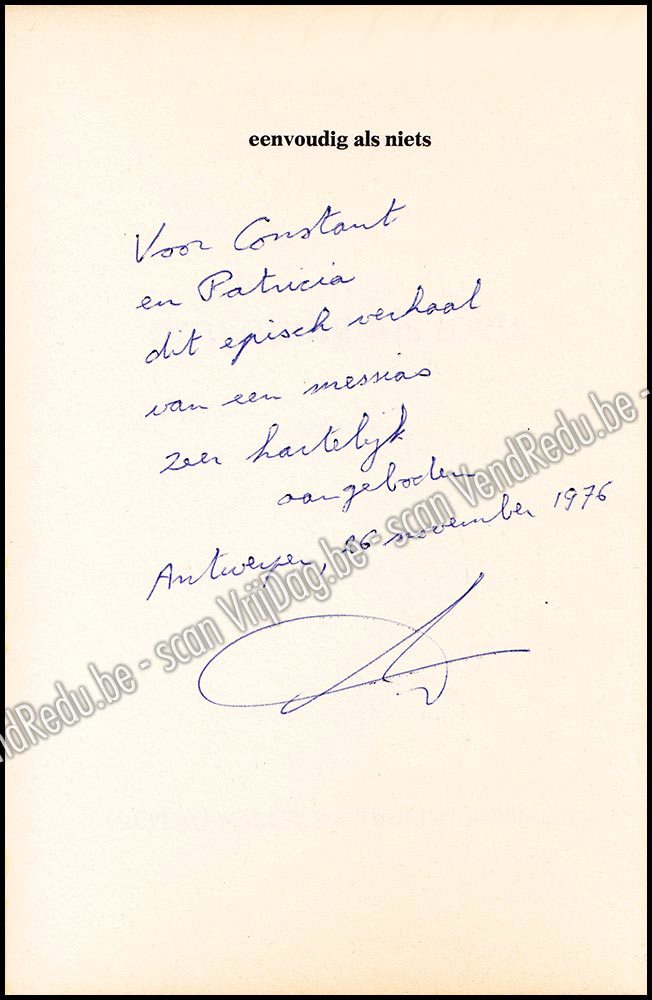 eenvoudig als niets
Voor Constant
en Patricia
dit episch verhaal
van een messias
zeer hartelijk
aangeboden
Antwerpen, 26 november 1976
VendRedu.be - scan VrijDag.be - scan VendRedu.be -